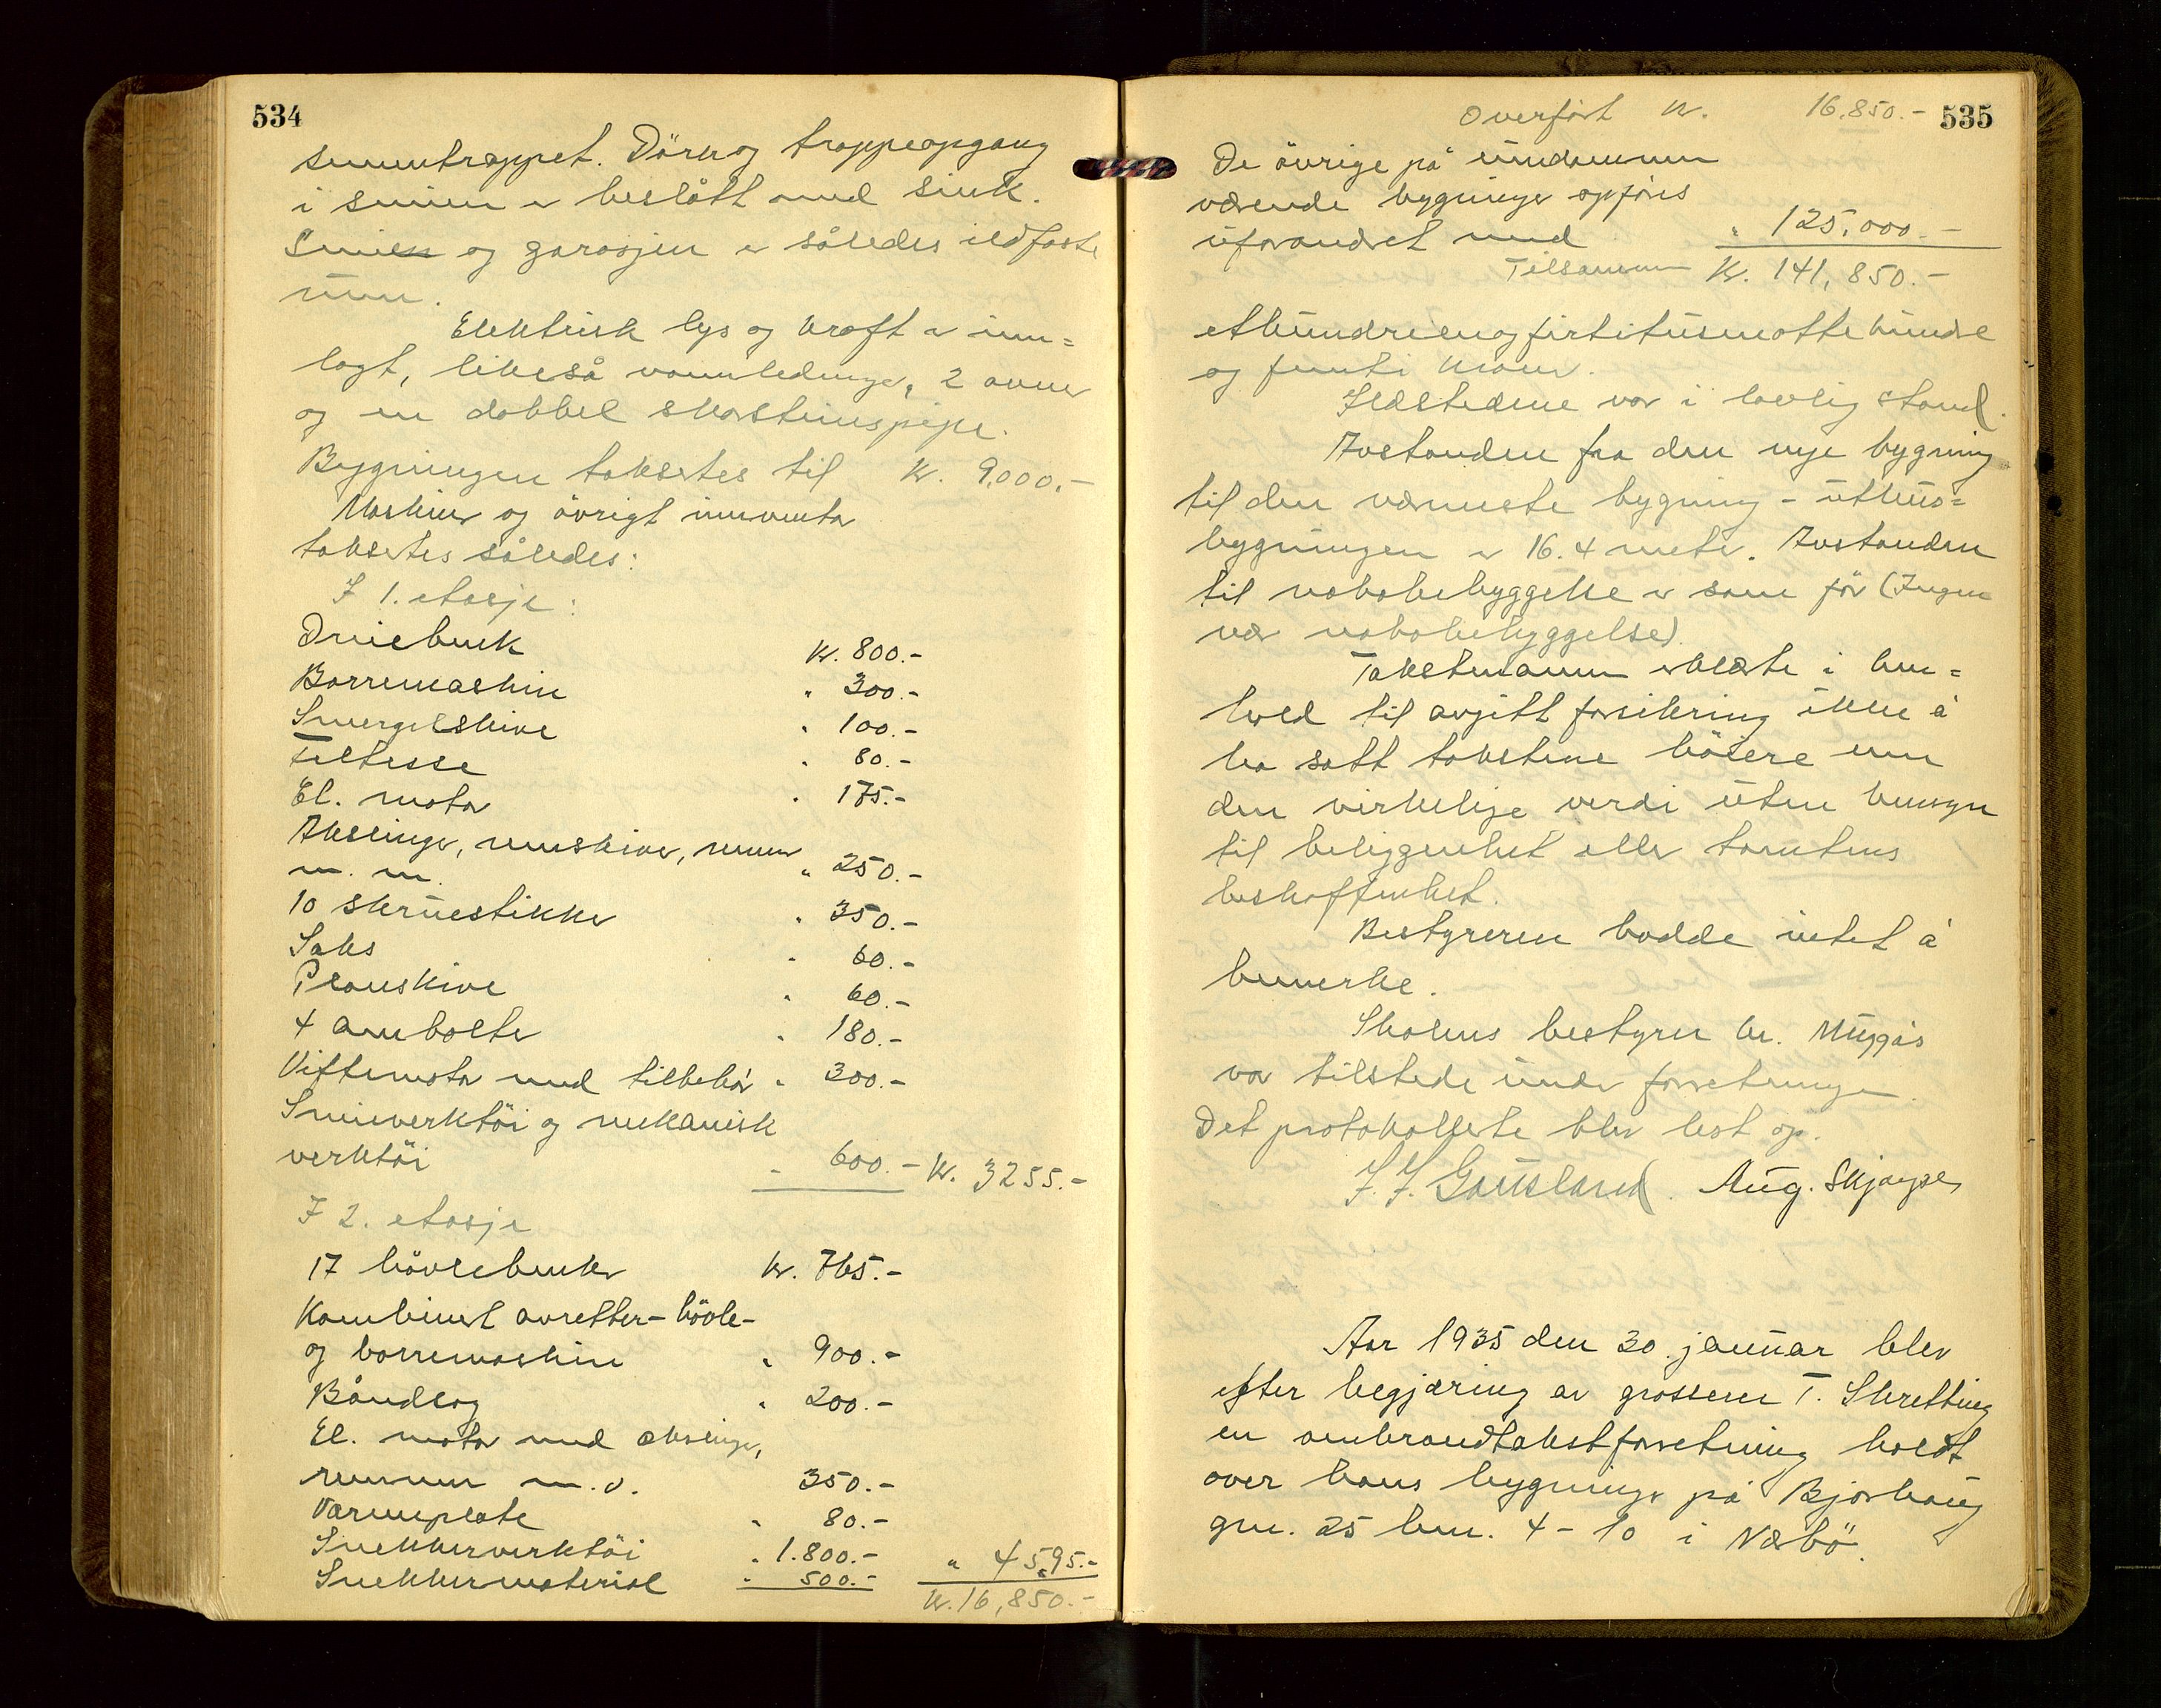 534
sementrappet. Dören og trappeopgang
i smien er beslått med sink.
Smien og garasjen er således ildfaste
rum.
Elektrisk lys og kraft er inn=
lagt, likeså vannledninger, 2 ovner
og en dobbel skorsteinspipe.
Bygningen taksertes til Kr. 9.000.-
Maskiner og övrigt inventar
taksertes således:
I 1. etasje:
Dreiebenk Kr. 800.-
Borremaskin " 300.-
Smergelskive " 100.-
Feltesse " 80.-
El. motor " 175.-
Akslinger, remskiver, remmer
m. m. " 250.-
10 skruestikker " 350.-
Saks " 60.-
Planskive " 60.-
4 ambolter " 180.-
Viftemotor med tilbehör " 300.-
Smieverktöi og mekanisk
verktöi " 600.- Kr. 3255.-
I 2. etasje
17 hövlebenker Kr. 765.-
Kombinert avretter- hövle-
og borremaskin " 900.-
Båndsag " 200.-
El. motor med akslinger,
remmer m. v. 350.-
Varmeplate " 80.-
Snekkerverktöi " 1.800.-
Snekkermaterial " 500.- " 4595.-
Kr. 16,850.-
535
Overfört Kr. 16,850.-
De övrige på eiendommen
værende bygninger opföres
uforandret med " 125,000.-
Tilsammen Kr. 141,850.-
etthundreenogfirtitusenottehundre
og femti kroner.
Ildstedene var i lovlig stand.
Avstanden fra den nye bygning
til den nærmeste bygning - uthus=
bygningen er 16.4 meter. Avstanden
til nabobebyggelse er som för (Ingen
nær nabobebyggelse).
Takstmennene erklærte i hen=
hold til avgitt forsikring ikke å
ha satt takstene höiere enn
den virkelige verdi uten hensyn
til beliggenhet eller tomtens
beskaffenhet.
Bestyreren hadde intet å
bemerke.
Skolens bestyrer hr. Muggås
var tilstede under forretningen.
Det protokollerte blev lest op.
J. J. Gausland. Aug. Skjæveland
Aar 1935 den 30. januar blev
efter begjæring av grosserer T. Skretting
en ombrandtakstforretning holdt
over hans bygninger på Bjorhaug
gnr. 25 bnr. 4-10 i Nærbö.